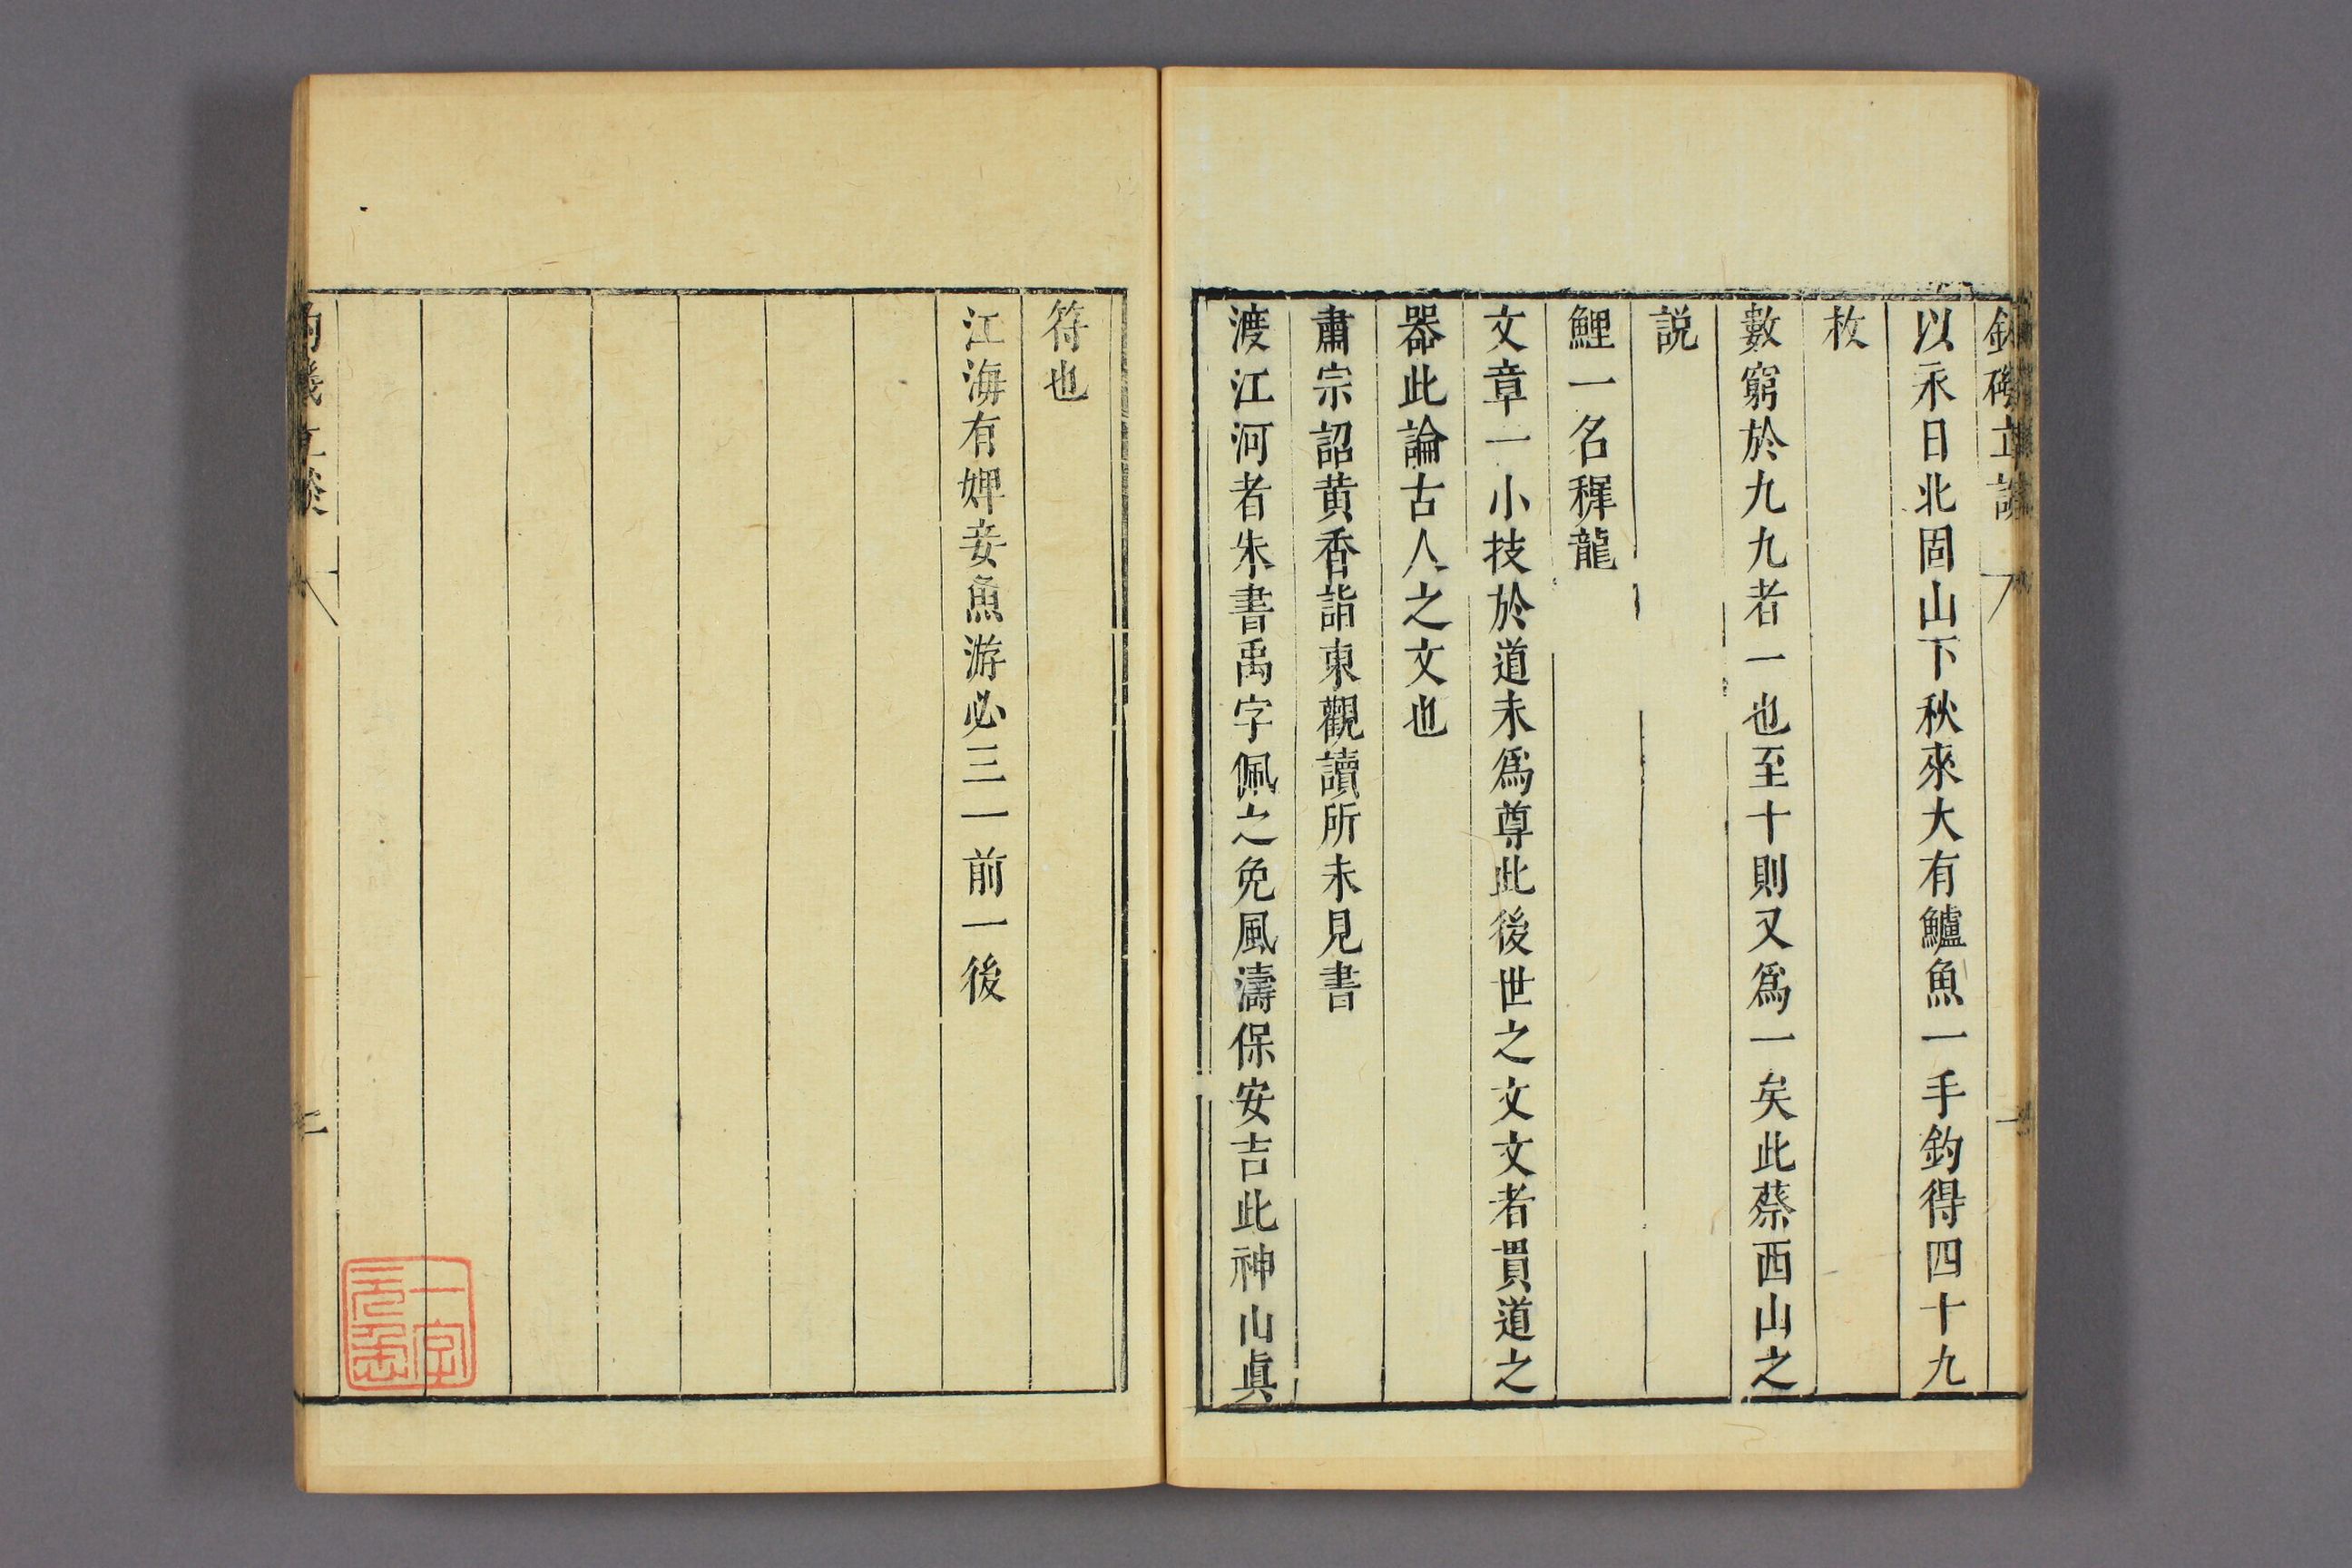 以永日北固山下秋來大有鱸魚一手釣得四十九
枚
數窮於九九者一也至十則又爲一矣此蔡西山之
説
鯉一名稺龍
文章一小技於道未爲尊此後世之文文者貫道之
器此論古人之文也
肅宗詔黃香詣東觀讀所未見書
渡江河者朱書禹字佩之免風濤保安吉此神山眞
符也
江海有婢妾魚游必三一前一後
二